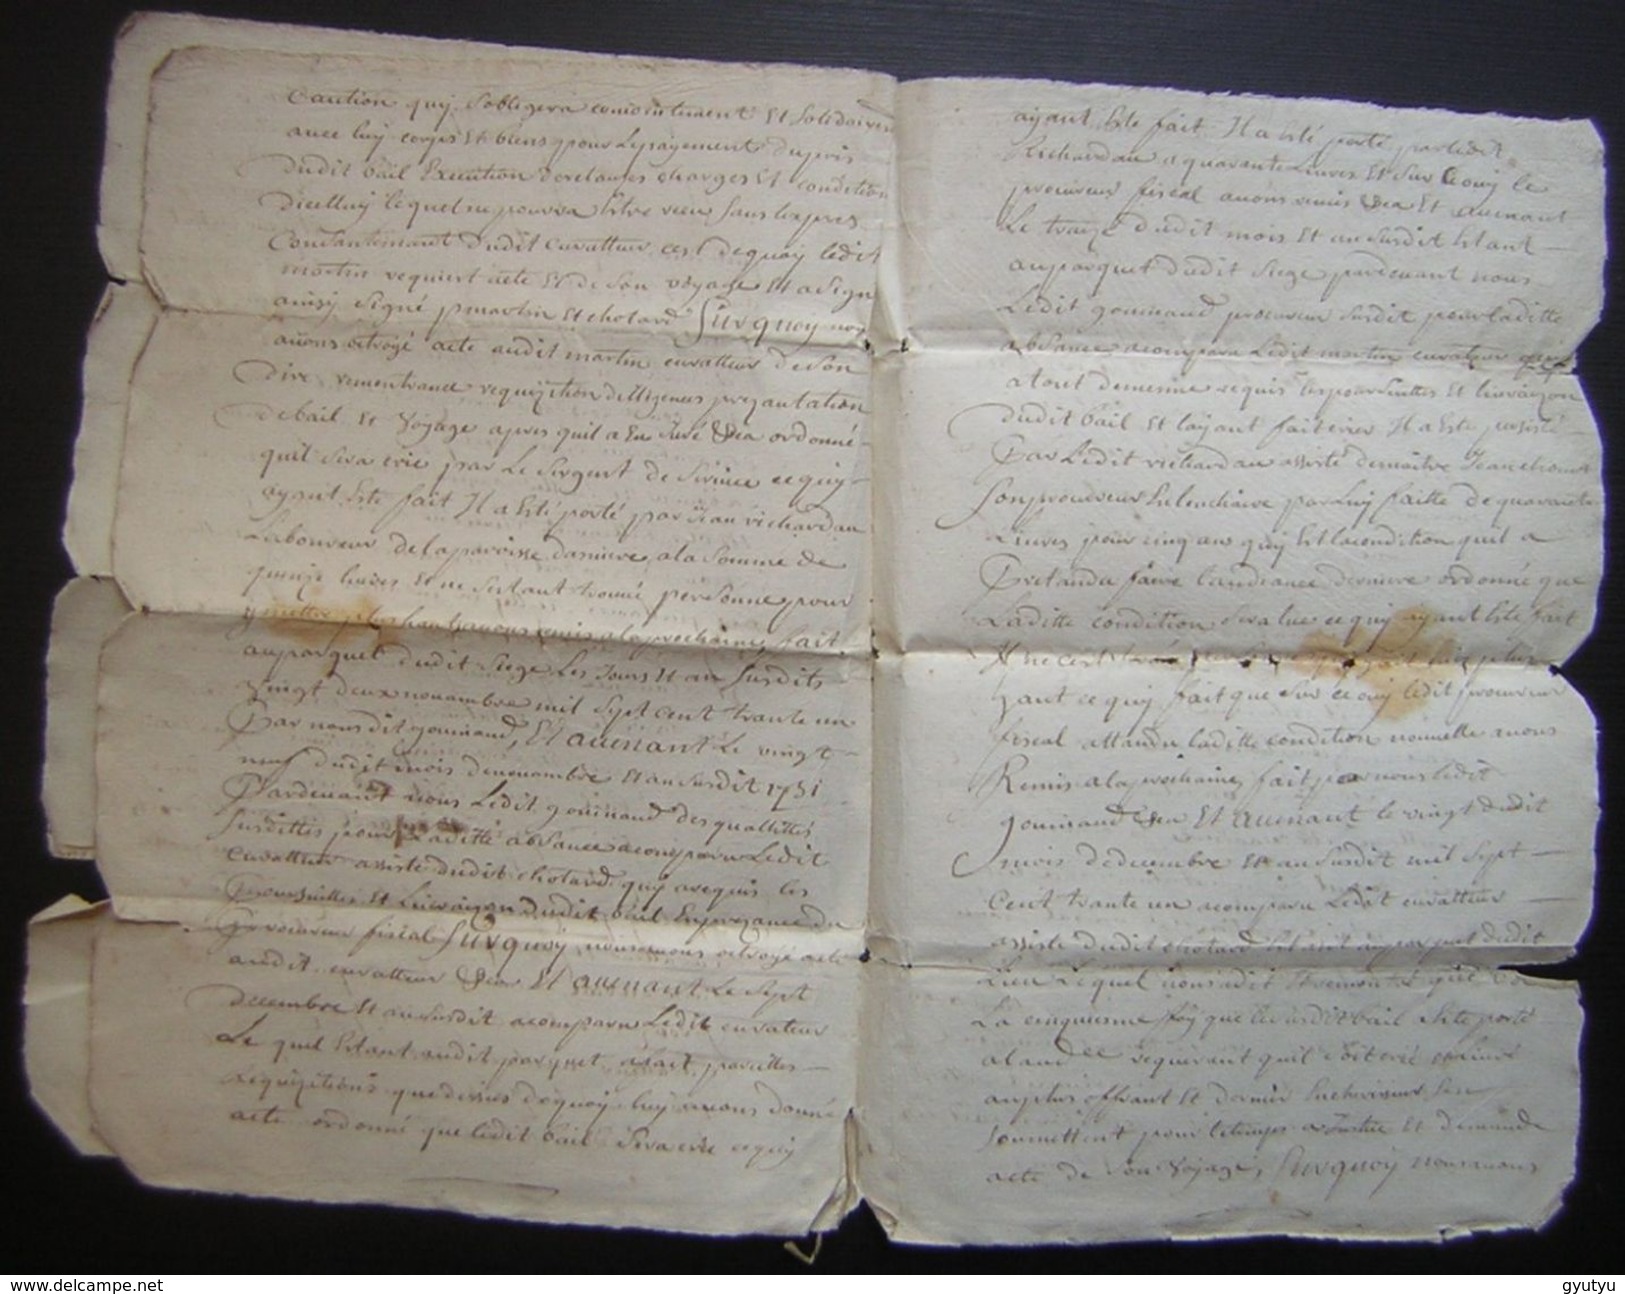 Caution quy soblegera conioinctement Et solidairem
avec luy corps Et biens pour Lepayement dupris
dudit bail Execution des clauses charges Et condition
dicelluy lequel ne pourra Estre sans lexpres
Consantemant dudit curatteur cest dequoy ledit
martin requiert acte Et de son voyage Et a sign
ainsy signé pmartin Et chotard Surquoy nou
avons octroyé acte audit martin curatteur de son
dire remontrance requizition dilligences prezantation
debail Et voyage apres quil a ordonné
quil sera crie par Le sergent de service ce quy
ayant Esté fait Il a Esté porté par Jean richardau
Laboureur de la paroisse dasniere a la somme de
quinze livres Et ne sestant trouvé personne pour
y mettre plus haut avons remis a la prochaine, fait
auparquet dudit Siege Les Jours Et an Susdits
vingt deux novambre mil sept cent trante un
Par nousdit gouinaud, Et avenant Le vingt
neuf dudit mois denovambre Et an susdit 1731
Pardevant nous Ledit gouinaud des quallittés
susdittes pour Laditte absance acomparu Ledit
curatteur assisté dudit chotard quy a requis les
Poursuittes Et Livraizon dudit bail En prezance du
Procureur fiscal Surquoy nous avons octroyé acte
audit curatteur Et avenant Le sept
decembre Et an susdit acomparu Ledit curateur
Le quel Estant audit parquet a fait pareilles
requizitions que dessus dequoy luy avons donné
acte ordonné que ledit bail sera crie ce quy
ayant Esté fait Il a Esté porté par ledit
richardau a quarante Livres Et sur ce ouy le
procureur fiscal avons remis Et avenant
Le traize dudit mois Et an susdit Estant
auparquet dudit siege pardevant nous
Ledit gouinaud procureur susdit pour laditte
absance acomparu Ledit martin curateur
a tout demesme requis les poursuittes Et livraizon
dudit bail Et layant fait crier Il a Esté persisté
Par Ledit richardau assisté demaitre Jean
son procureur En lenchaire par luy faitte de quarante
Livres pour cinq ans quy Est la condition quil a
Pretandu faire landiance derniere ordonné que
Laditte condition sera lue ce quy ayant Esté fait
Il ne cest
ce quy fait que sur ce ouy ledit procureur
fiscal attandu laditte condition nouvelle avons
Remis a la prochaine, fait par nous ledit
gouinaud Et avenant le vingt dudit
mois dedecembre Et an susdit mil sept
cent trante un acomparu Ledit curatteur
assisté dudit chotard Estant auparquet dudit
Lieu Lequel nous a dit Et remontré que
La cinquiesme foy que Ledit bail Esté porté
a requerant quil soit crié
au plus offrant Et dernier Encherisseur
soumettant pour le temps Et demande
acte de son voyage, Surquoy nous avons
gyutyu
www.delcampe.net